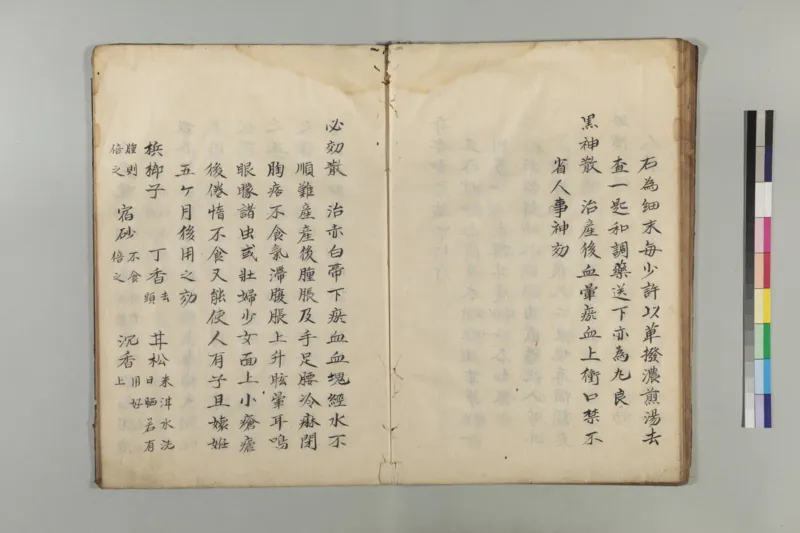 右為細末每少許以萆撥濃煎湯去
査一匙和調藥送下亦為丸良
黒神散 治産後血暈瘀血上衝口禁不
省人事神効
必効散 治赤白帯下瘀血血塊經水不
順難産産後腫脹及手足腰冷麻閉
胸痞不食氣滞腹脹上升眩暈耳鳴
眼矇諸虫或壮婦少女面上小瘡瘡
後倦惰不食又能使人有子且嬢姙
五ケ月後用之効
檳榔子 丁香去頭 甘松米泔水洗日晒若有
腫則倍之 宿砂不食倍之 沉香用好上